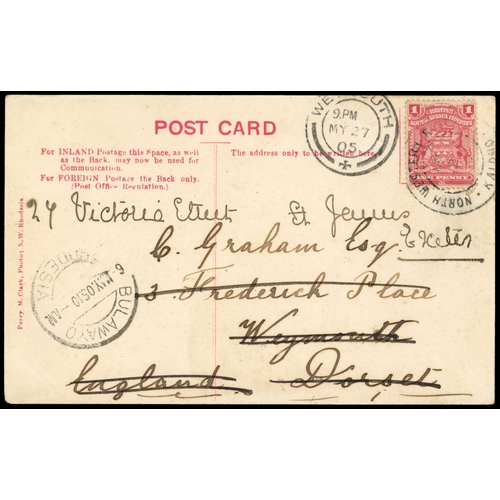 POST CARD
For INLAND Postage this Space, as well
as the Back, may now be used for
Communication.
For FOREIGN Postage the Back only.
(Post Office Regulation.)
The address only to be written here.
WEYMOUTH
9.PM
MY 27
05
1 BRITISH 1
SOUTH AFRICA COMPANY
ONE PENNY
NORTH WESTERN
KALOMO
24 Victoria Street St James
C. Graham Esq Exeter
3 Frederick Place
Weymouth
England Dorset
BULAWAYO
RHODESIA
Percy M. Clark, Photo; N.W. Rhodesia